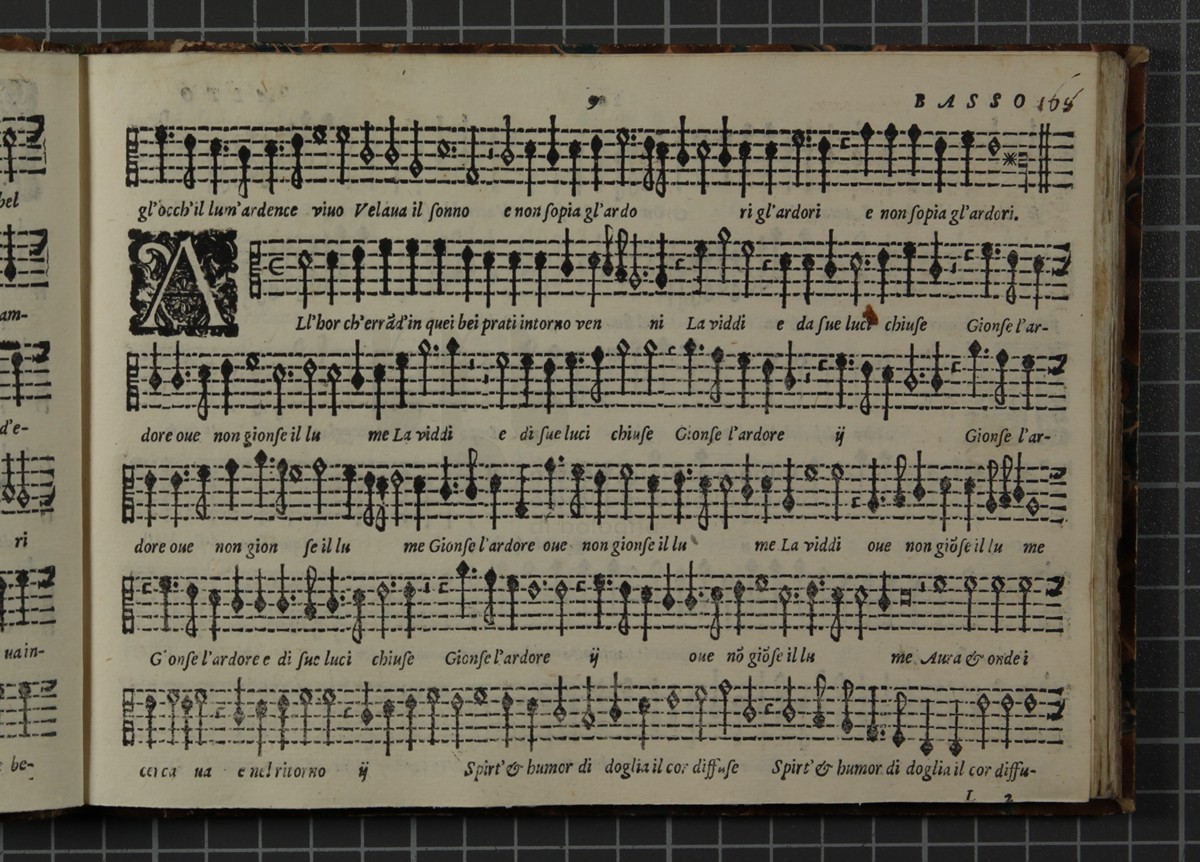 9 BASSO 165
gl'occh'il lum'ardence viuo Velaua il sonno e non sopia gl'ardo ri gl'ardori e non sopia gl'ardori.
ALl'hor ch'errãd'in quei bei prati intorno ven ni La viddi e da sue luci chiuse Gionse l'ar-
dore oue non gionse il lu me La viddi e di sue luci chiuse Gionse l'ardore ij Gionse l'ar-
dore oue non gion se il lu me Gionse l'ardore oue non gionse il lu me La viddi oue non giõse il lu me
Gionse l'ardore e di sue luci chiuse Gionse l'ardore ij oue nõ giõse il lu me Aura & onde i
cerca ua e nel ritorno ij Spirt' & humor di doglia il cor diffuse Spirt' & humor di doglia il cor diffu-
L 2
bel
am-
d'e-
ri
ua in-
be-